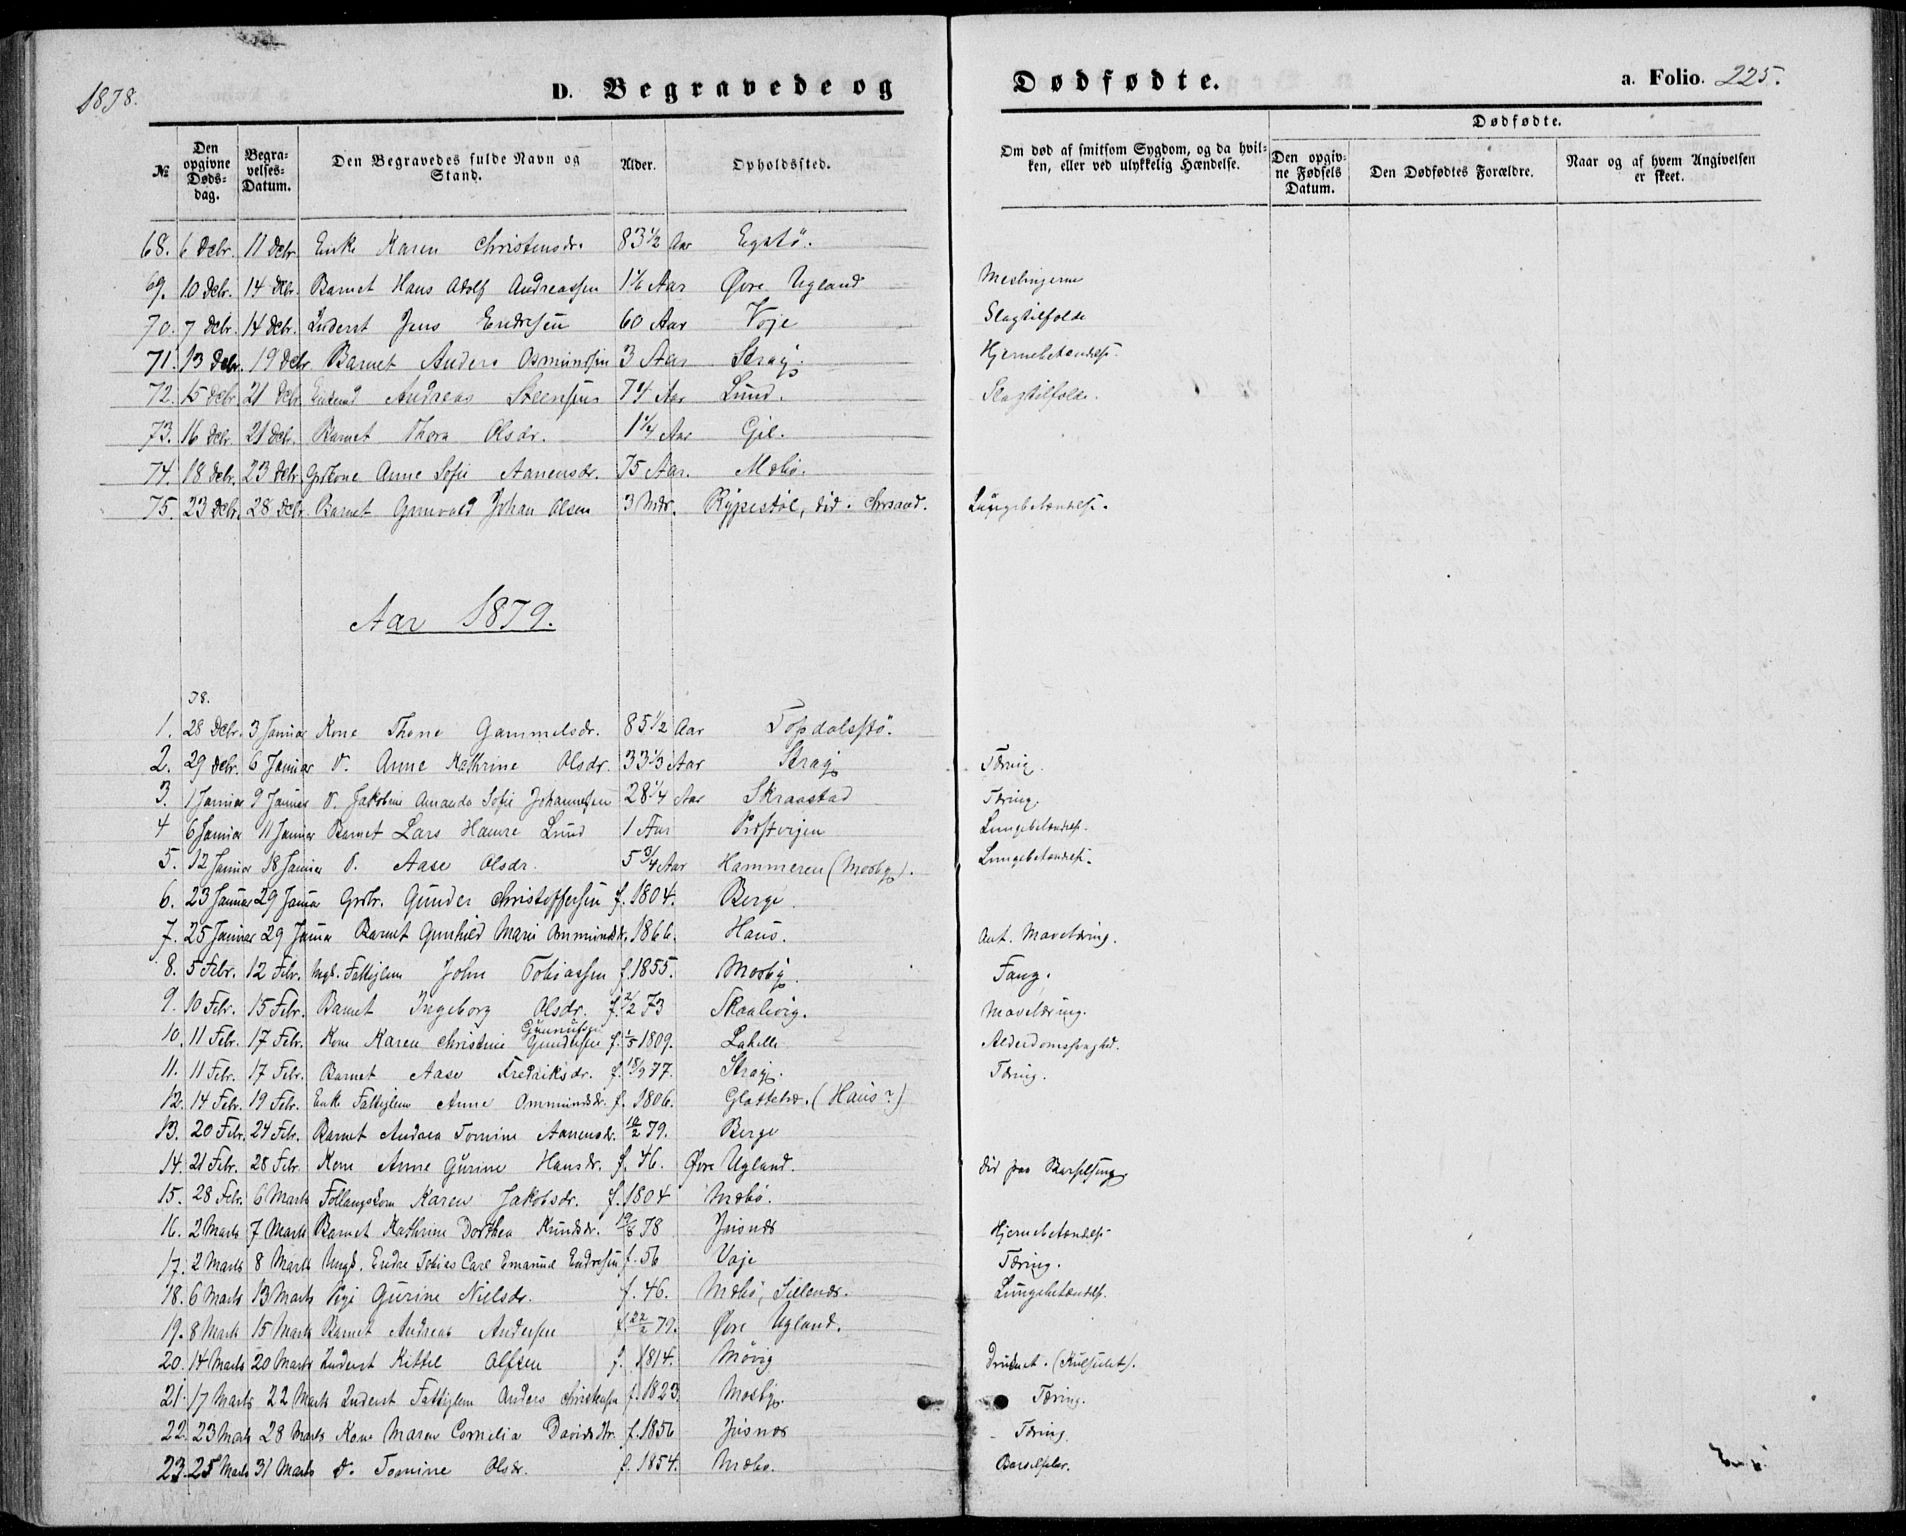 1878.
D. Begravede og Dødfødte.
a. Folio. 225.
№
Den opgivne Døds-dag.
Begra-velses-Datum.
Den Begravedes fulde Navn og Stand.
Alder.
Opholdssted.
Om død af smitsom Sygdom, og da hvil-ken, eller ved ulykkelig Hændelse.
Dødfødte.
Den opgiv-ne Fødsels Datum.
Den Dødfødtes Forældre.
Naar og af hvem Angivelsen er skeet.
68. 6 Debr. 11 Debr. Enke Karen Christensdr. 83 1/2 Aar Egstö.
69. 10 Debr. 14 Debr. Barnet Hans Adolf Andreassen 1 1/6 Aar Øvre Ugland Meslingerne
70. 7 Debr. 14 Debr. Inderst Jens Endresen 60 Aar Voje Slagtilfælde
71. 13 Debr. 19 Debr Barnet Anders Osmundsen 3 Aar Stray. Hjernebetændelse.
72. 15 Debr. 21 Debr. Andreas Steensen 74 Aar Lund. Slagtilfælde.
73. 16 Debr. 21 Debr. Barnet Thora Olsdr. 1 1/4 Aar Gil.
74. 18 Debr. 23 Debr. Grdkone Anne Sofie Aanensdr. 75 Aar. Mæbø.
75. 23 Debr. 28 Debr. Barnet Gunvald Johan Olsen 3 Mdr. Rypestöl, död i Chrsand. Lungebetændelse.
Aar 1879.
78.
1. 28 Debr. 3 Januar Kone Thone Gammelsdr. 85 1/2 Aar Topdalsstö.
2. 29 Debr. 6 Januar D. Anne Kathrine Olsdr. 33 1/3 Aar Stray Tæring.
3. 1 Januar 9 Januar D. Jakobine Amanda Sofie Johannesen 28 1/4 Aar Skraastad Tæring.
4 6 Januar 11 Januar Barnet Lars Hamre Lund 1 Aar Præstvigen Lungebetændelse.
5. 12 Januar 18 Januar D. Aase Olsdr. 5 3/4 Aar Hammeren (Mosby). Lungebetændelse.
6. 23 Januar 29 Januar Grdbr. Gunder Christoffersen f. 1804. Berge.
7. 25 Januar 29 Januar Barnet Gunhild Marie Ommundsdr. 1866. Haus. Ant. Mavetæring.
8. 5 Febr. 12 Febr. Ungk. Fattiglem John Tobiassen f. 1855. Mosby.
9. 10 Febr. 15 Febr. Barnet Ingeborg Olsdr. f. 2/2 73 Skaalevig. Mavetæring.
10. 11 Febr. 17 Febr. Kone Karen Christine Gundersen f. 1/5 1809. Lahelle Alderdomssvaghed.
11. 11 Febr. 17 Febr. Barnet Aase Fredriksdr. f. 18/9 77. Stray. Tæring.
12. 14 Febr. 19 Febr. Enke Fattiglem Anne Ommundsdr. f. 1806. (Haus?)
13. 20 Febr. 24 Febr. Barnet Andrea Tomine Aanensdr. 10/2 79. Berge
14. 21 Febr. 28 Febr. Kone Anne Gurine Hansdr. f. 46. Øvre Ugland. död paa Barselseng.
15. 28 Febr. 6 Marts Karen Jakobsdr. f. 1804 Mæbø.
16. 2 Marts 7 Marts Barnet Kathrine Dorthea Knudsdr. 19/8 78 Justnæs Hjernebetændelse
17. 2 Marts 8 Marts Ungk. Endre Tobias Carl Emanuel Endresen f. 56 Voje Tæring.
18. 6 Marts 13 Marts Pige Gurine Nielsdr. f. 46. Mæbø, Søllandr. Lungebetændelse.
19. 8 Marts 15 Marts Barnet Andreas Andersen f. 22/2 79. Øvre Ugland.
20. 14 Marts 20 Marts Inderst Kittel Olfsen f. 1814. Møvig Druknet. (Kulseilet).
21. 17 Marts 22 Marts Inderst Fattiglem Anders Christensen f. 1823. Mosby. Tæring.
22. 23 Marts 28 Marts Kone Maren Cornelia Davidsdtr. f. 1856 Justnæs Tæring.
23. 25 Marts 31 Marts D. Tomine Olsdr. f. 1854. Mæbø. Barselfeber.